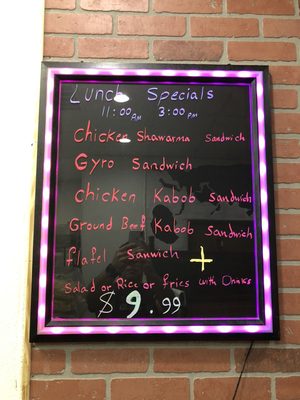 Lunch Specials
11:00 AM 3:00 PM
Chicken Shawarma Sandwich
Gyro Sandwich
Chicken Kabob Sandwich
Ground Beef Kabob Sandwich
flafel Sanwich +
Salad or Rice or fries with Drinks
$ 9.99